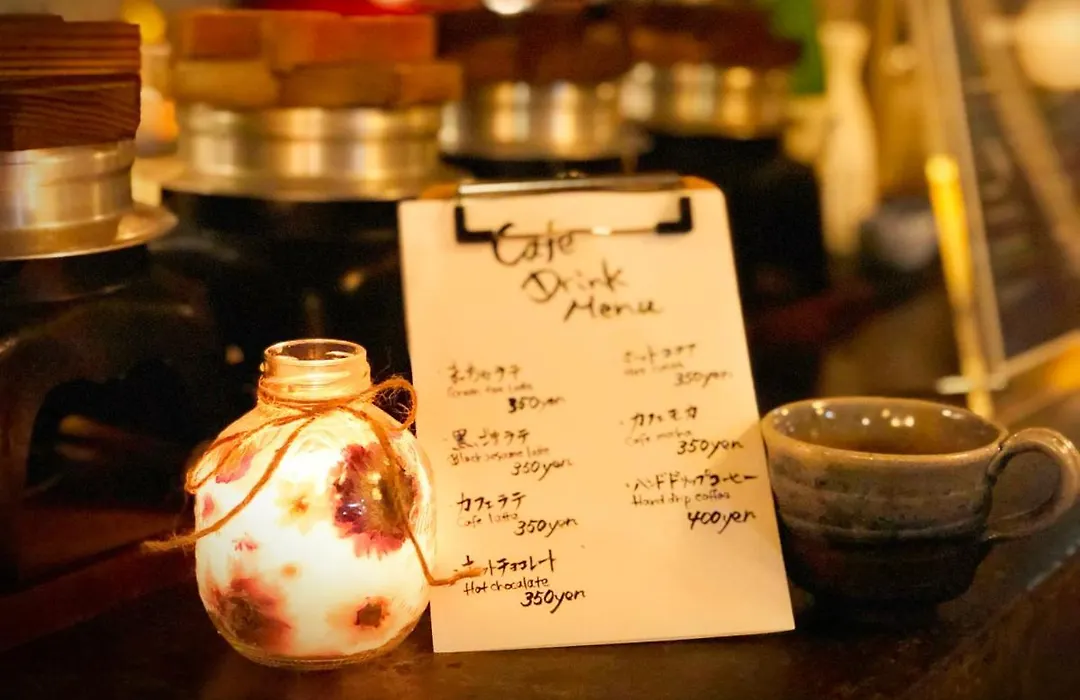 Cafe
Drink
Menu
・まっちゃラテ
Green tea latte
350yen
・黒ゴマラテ
Black sesame latte
350yen
・カフェラテ
Cafe latte
350yen
・ホットチョコレート
Hot chocalate
350yen
・ホットココア
Hot cocoa
350yen
・カフェモカ
Cafe mocha
350yen
・ハンドドリップコーヒー
Hand drip coffee
400yen